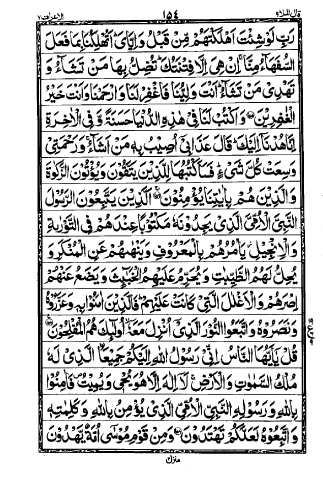 قال الملا ٩ ١٥٤ الاعراف ٧
رَبِّ لَوْ شِئْتَ اَهْلَكْتَهُمْ مِّنْ قَبْلُ وَاِيَّايَ ؕ اَتُهْلِكُنَا بِمَا فَعَلَ
السُّفَهَآءُ مِنَّا ۚ اِنْ هِيَ اِلَّا فِتْنَتُكَ ؕ تُضِلُّ بِهَا مَنْ تَشَآءُ وَ
تَهْدِيْ مَنْ تَشَآءُ ؕ اَنْتَ وَلِيُّنَا فَاغْفِرْ لَنَا وَارْحَمْنَا وَاَنْتَ خَيْرُ
الْغٰفِرِيْنَ ۝ وَاكْتُبْ لَنَا فِيْ هٰذِهِ الدُّنْيَا حَسَنَةً وَّفِي الْاٰخِرَةِ
اِنَّا هُدْنَآ اِلَيْكَ ؕ قَالَ عَذَابِيْٓ اُصِيْبُ بِهٖ مَنْ اَشَآءُ ۚ وَرَحْمَتِيْ
وَسِعَتْ كُلَّ شَيْءٍ ؕ فَسَاَكْتُبُهَا لِلَّذِيْنَ يَتَّقُوْنَ وَيُؤْتُوْنَ الزَّكٰوةَ
وَالَّذِيْنَ هُمْ بِاٰيٰتِنَا يُؤْمِنُوْنَ ۝ اَلَّذِيْنَ يَتَّبِعُوْنَ الرَّسُوْلَ
النَّبِيَّ الْاُمِّيَّ الَّذِيْ يَجِدُوْنَهٗ مَكْتُوْبًا عِنْدَهُمْ فِي التَّوْرٰىةِ
وَالْاِنْجِيْلِ ؗ يَاْمُرُهُمْ بِالْمَعْرُوْفِ وَيَنْهٰىهُمْ عَنِ الْمُنْكَرِ وَ
يُحِلُّ لَهُمُ الطَّيِّبٰتِ وَيُحَرِّمُ عَلَيْهِمُ الْخَبٰٓئِثَ وَيَضَعُ عَنْهُمْ
اِصْرَهُمْ وَالْاَغْلٰلَ الَّتِيْ كَانَتْ عَلَيْهِمْ ؕ فَالَّذِيْنَ اٰمَنُوْا بِهٖ وَعَزَّرُوْهُ
وَنَصَرُوْهُ وَاتَّبَعُوا النُّوْرَ الَّذِيْٓ اُنْزِلَ مَعَهٗٓ ۙ اُولٰٓئِكَ هُمُ الْمُفْلِحُوْنَ ۝
قُلْ يٰٓاَيُّهَا النَّاسُ اِنِّيْ رَسُوْلُ اللّٰهِ اِلَيْكُمْ جَمِيْعًا الَّذِيْ لَهٗ
مُلْكُ السَّمٰوٰتِ وَالْاَرْضِ ۚ لَآ اِلٰهَ اِلَّا هُوَ يُحْيٖ وَيُمِيْتُ ۪ فَاٰمِنُوْا
بِاللّٰهِ وَرَسُوْلِهِ النَّبِيِّ الْاُمِّيِّ الَّذِيْ يُؤْمِنُ بِاللّٰهِ وَكَلِمٰتِهٖ
وَاتَّبِعُوْهُ لَعَلَّكُمْ تَهْتَدُوْنَ ۝ وَمِنْ قَوْمِ مُوْسٰٓى اُمَّةٌ يَّهْدُوْنَ
منزل